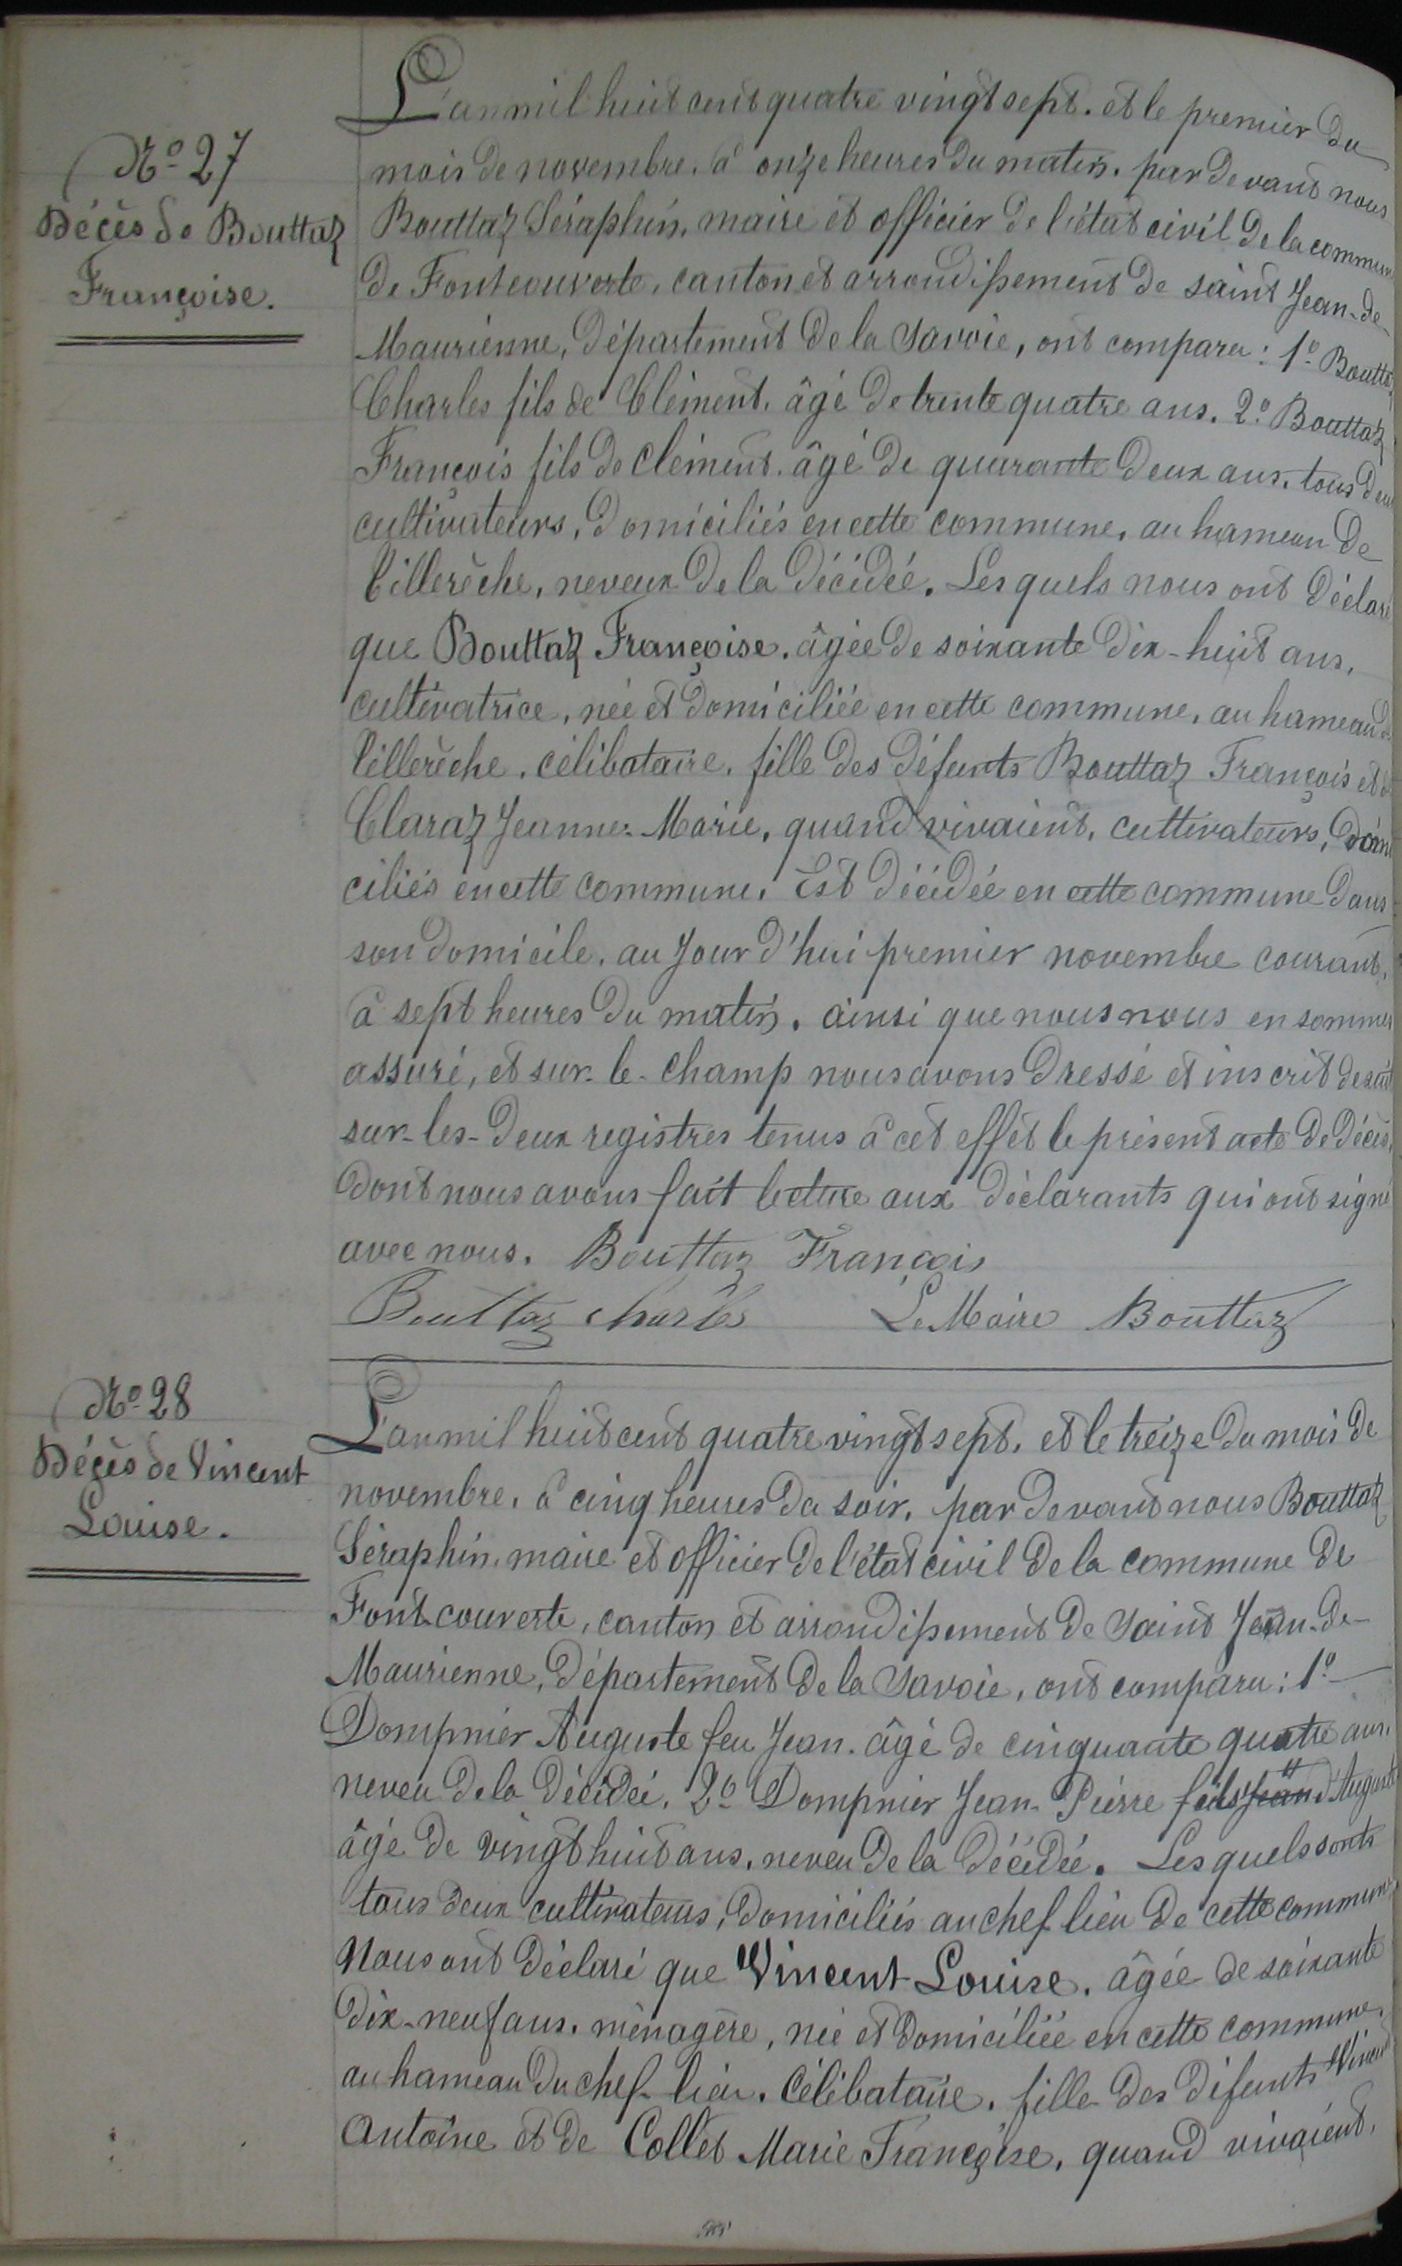 L'an mil huit cent quatre vingt sept. et le premier du
N° 27
mois de novembre. à onze heures du matin. par devant nous
Décès de Bouttaz
Bouttaz Séraphin, maire et officier de l'état civil de la commune
Françoise.
de Fontcouverte, canton et arrondissement de saint Jean-de-
Maurienne, Département de la Savoie, ont comparu : 1° Bouttaz
Charles fils de Clément. âgé de trente quatre ans. 2° Bouttaz
François fils de Clément. âgé de quarante deux ans. tous deux
cultivateurs, domiciliés en cette commune, au hameau de
Villerèche, neveux de la décédée. Les quels nous ont déclaré
que Bouttaz Françoise. âgée de soixante dix-huit ans,
cultivatrice, née et domiciliée en cette commune, au hameau de
Villerèche. célibataire. fille des défunts Bouttaz François et de
Claraz Jeanne-Marie, quand vivaient, cultivateurs, domi
ciliés en cette commune. Est décédée en cette commune dans
son domicile. au jour d'hui premier novembre courant,
à sept heures du matin. ainsi que nous nous en sommes
assuré, et sur-le-champ nous avons dressé et inscrit de suite
sur-les-deux registres tenus à cet effet le présent acte de décès,
dont nous avons fait lecture aux déclarants qui ont signé
avec nous. Bouttaz François
Bouttaz Charles Le Maire Bouttaz
N° 28
L'an mil huit cent quatre vingt sept. et le treize du mois de
Décès de Vincent
novembre. à cinq heures du soir. par devant nous Bouttaz
Louise.
Séraphin, maire et officier de l'état civil de la commune de
Fontcouverte, canton et arrondissement de Saint Jean-de-
Maurienne, Département de la Savoie, ont comparu : 1°
Dompnier Auguste feu Jean. âgé de cinquante quatre ans.
neveu de la décédée. 2° Dompnier Jean-Pierre fils Jean d'Auguste
âgé de vingt huit ans. neveu de la décédée. Les quels sonts
tous deux cultivateurs, domiciliés au chef lieu de cette commune.
Nous ont déclaré que Vincent Louise. âgée de soixante
dix-neuf ans. ménagère, née et domiciliée en cette commune.
au hameau du chef-lieu. Célibataire. fille des défunts Vincent
Antoine et de Collet Marie Françoise, quand vivaient,